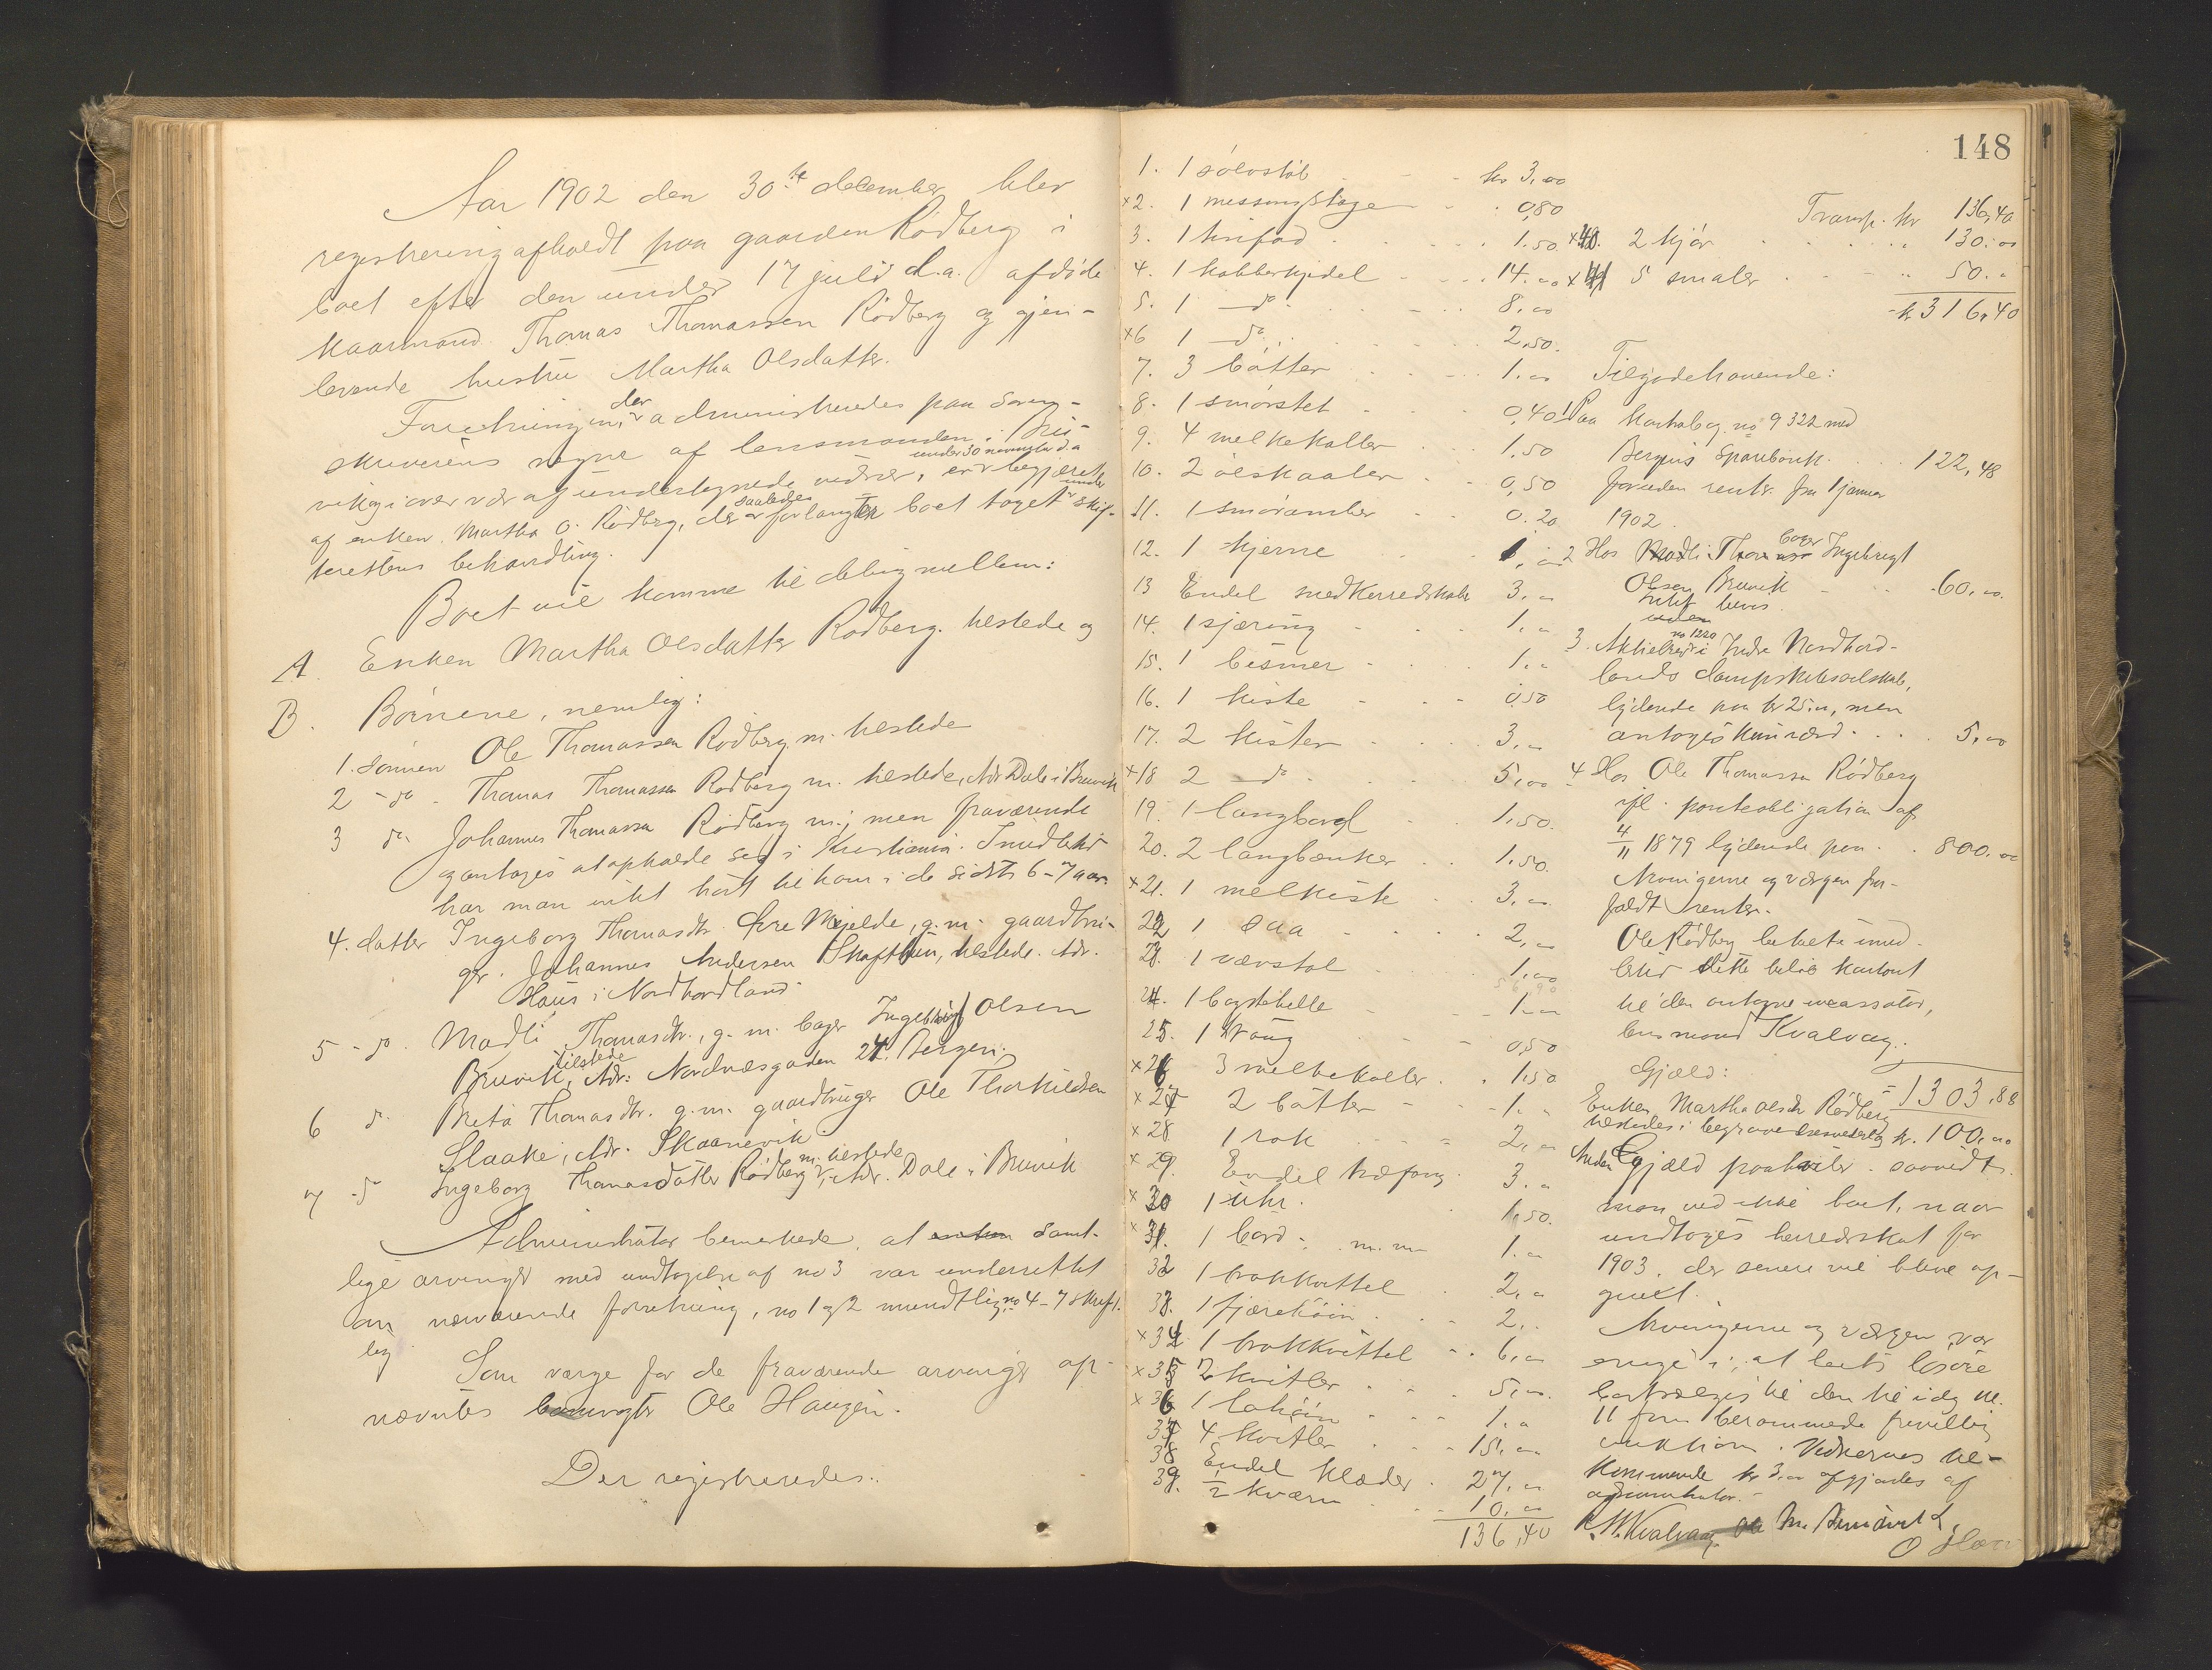 Aar 1902 den 30te december blev
registrering afholdt paa gaarden Rödberg i
boet efter den under 17 juli d.a. afdöde
kaarmand Thomas Thomassen Rödberg og gjen-
levende hustru Martha Olsdatter.
Forretningen, der administreredes paa Soren-
skriverens vegne af lensmanden i
overvær af undertegnede vidner, er under 30 november d.a. begjæret
af enken Martha O. Rödberg, der saaledes forlangte boet taget under skif-
terettens behandling.
Boet vil komme til deling mellem:
A. Enken Martha Olsdatter Rödberg. tilstede og
B. Börnene, nemlig:
1. Sönnen Ole Thomassen Rödberg m. tilstede
2 - do - Thomas Thomassen Rödberg m. tilstede, Adr Dale i Bruvik
3 do Johannes Thomassen Rödberg m.; men fraværende
og antages at opholde sig i Kristiania. Imidlertid
har man intet hört til ham i de sidste 6-7 aar
4. datter Ingeborg Thomasdtr. Övre Mjelde, g.m. gaardbru-
ger Johannes Andersen Skaftun, tilstede. Adr.
Haus i Nordhordland.
5 - do. Madli Thomasdtr., g. m. bager Ingebrigt Olsen
Bruvik, tilstede Adr: Nordnæsgaden 24. Bergen.
6 do. Brita Thomasdtr. g.m. gaardbruger Ole Thorkildsen
Slaake, Adr. Skaanevik
7 - do Ingeborg Thomasdatter Rödberg m. tilstede, Adr. Dale i Bruvik
Administrator bemerkede, at enken samt-
lige arvinger med undtagelse af no 3 var underrettet
om nærværende forretning, no 1 og 2 mundtlig, no 4-7 skrift-
lig
Som værge for de fraværende arvinger op-
nævntes Ole Haugen.
Der registreredes:
148
1. 1 sölvstöb kr 3,00
x2. 1 messingstage 0,80
3. 1 trefad 1.50
4. 1 kobberkjedel 14.00
5. 1 do 8,00
x6 1 do 2,50.
7. 3 bötter 1.00
8. 1 smörstet 0,40
9. 4 melkekoller 1,50
10. 2 ölskaaler 0,50
11. 1 smöramber 0.20
12. 1 kjerne
13 Endel smedkerredskaber 3.
14. 1 sjæring 1.
15. 1 bismer 1.
16. 1 kiste 0,50
17. 2 kister 3,
x18 2 do 5,00
19. 1 langbord 1,50.
20. 2 langbænker 1,50.
x21. 1 melkiste 3,
22 1 saa 2,
23. 1 vævstol 1,00
24. 1 bagstehelle 1.
25. 1 0,50
x26 3 melkekoller 1,50
x27 2 bötter 1.
x28 1 rok 2,
x29. Endel træfang 3.
x30 1 uhr. 1,50.
x31. 1 bord m.m. 1.
32 1 brokkvittel 2,
33. 1 fjæreköin 2,
x34 1 brokkvittel 6,
x35 2 kvitler 5,
x36 1 laköin 1.
37 4 kvitler 15,
38 Endel klæder 27,
39. ½ kværn 10.
136,40
Transp. kr 136,40
x40. 2 kjör 130.00
x41 5 smaler 50.
kr 316,40
Tilgodehavende:
1 Paa Kontobog no 9322 med
Bergens Sparebank 122,48
foruden renter fra 1 januar
1902.
2 Hos bager Ingebrigt
Olsen Bruvik 60,00.
intet bevis.
3. Aktiebrev no 1220 i Indre Nordhord-
lands dampskibsselskab,
lydende paa kr 25.00, men
antages kun værd 5,00
4 Hos Ole Thomassen Rödberg
ifl. panteobligation af
4/11 1879 lydende paa 800.00
Arvingerne og værgen fra-
faldt renter.
Ole Rödberg betalte imid-
lertid dette belöb kontant
til den antagne incassator,
lensmand Kvalvaag.
1303,88
Gjæld:
Enken Martha Olsdtr Rödberg
tilstodes i begravelsesudlæg kr. 100,00
Anden gjæld paahviler saavidt
man ved ikke boet, naar
undtages herredsskat for
1903, der senere vil blive op-
givet.
Arvingerne og værgen var
enige i, at boets lösöre
bortsælges til den til idag kl.
11 form berammede frivillig
auktion. Vidnernes til-
kommende kr 3,00 afgjordes af
administrator.